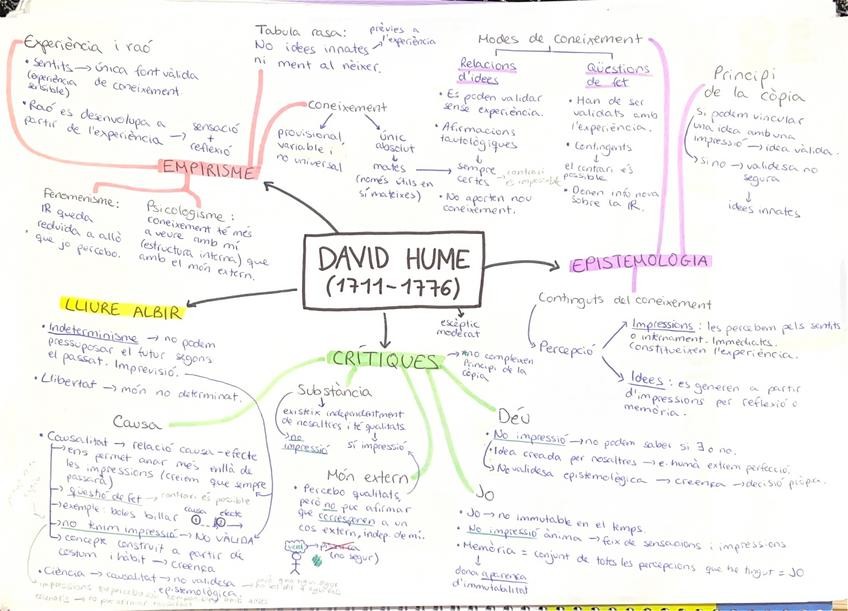 Experiència i raó
• Sentits → única font vàlida
(experiència de coneixement.
sensible)
• Raó es desenvolupa a
partir de l'experiència → sensació
+
reflexió
EMPIRISME
Tabula rasa: prèvies a
No idees innates → l'experiència
ni ment al néixer.
coneixement
provisional,
variable i
no universal
únic
absolut
mates
(només útils en
sí mateixes)
Fenomenisme:
IR queda
reduïda a allò
que jo percebo.
Psicologisme:
coneixement té més
a veure amb mi
(estructura interna) que
amb el món extern.
Modes de coneixement
Relacions
d'idees
• Es poden validar
sense experiència.
• Afirmacions
tautològiques
sempre → contrari
certes és impossible
• No aporten nou
coneixement.
Qüestions
de fet
• Han de ser
validats amb
l'experiència.
• Contingents
el contrari és
possible
• Donen info nova
sobre la IR.
Principi
de la còpia
Si podem vincular
una idea amb una
impressió → idea vàlida.
Si no → validesa no
segura
idees innates
DAVID HUME
(1711-1776)
EPISTEMOLOGIA
Continguts del coneixement
Percepció
Impressions: les percebem pels sentits
o internament. Immediates.
Constitueixen l'experiència.
Idees: es generen a partir
d'impressions per reflexió o
memòria.
escèptic
moderat
LLIURE ALBIR
• Indeterminisme → no podem
pressuposar el futur segons
el passat. Imprevisió.
• Llibertat → món no determinat.
CRÍTIQUES
→ no compleixen
Principi de la
còpia
Causa
• Causalitat → relació causa-efecte
→ ens permet anar més enllà de
les impressions (creiem que sempre
passarà)
→ qüestió de fet → contrari és possible
→ exemple: boles billar causa efecte
① ②
→ no tenim impressió → No VÀLIDA
→ concepte construït a partir de
costum i hàbit → creença
• Ciència → causalitat → no validesa
epistemològica
Substància
existeix independentment
de nosaltres i té qualitats
no
impressió
sí impressió
Món extern
• Percebo qualitats,
però no puc afirmar
que corresponen a un
cos extern, indep. de mi.
(no segur)
Déu
• No impressió → no podem saber si ∃ o no.
• Idea creada per nosaltres → e. humà extrem perfecció.
No validesa epistemològica → creença → decisió pròpia.
Jo
• Jo → no immutable en el temps.
• No impressió ànima → feix de sensacions i impressions
• Memòria = conjunt de totes les percepcions que he tingut = JO
dona aparença
d'immutabilitat